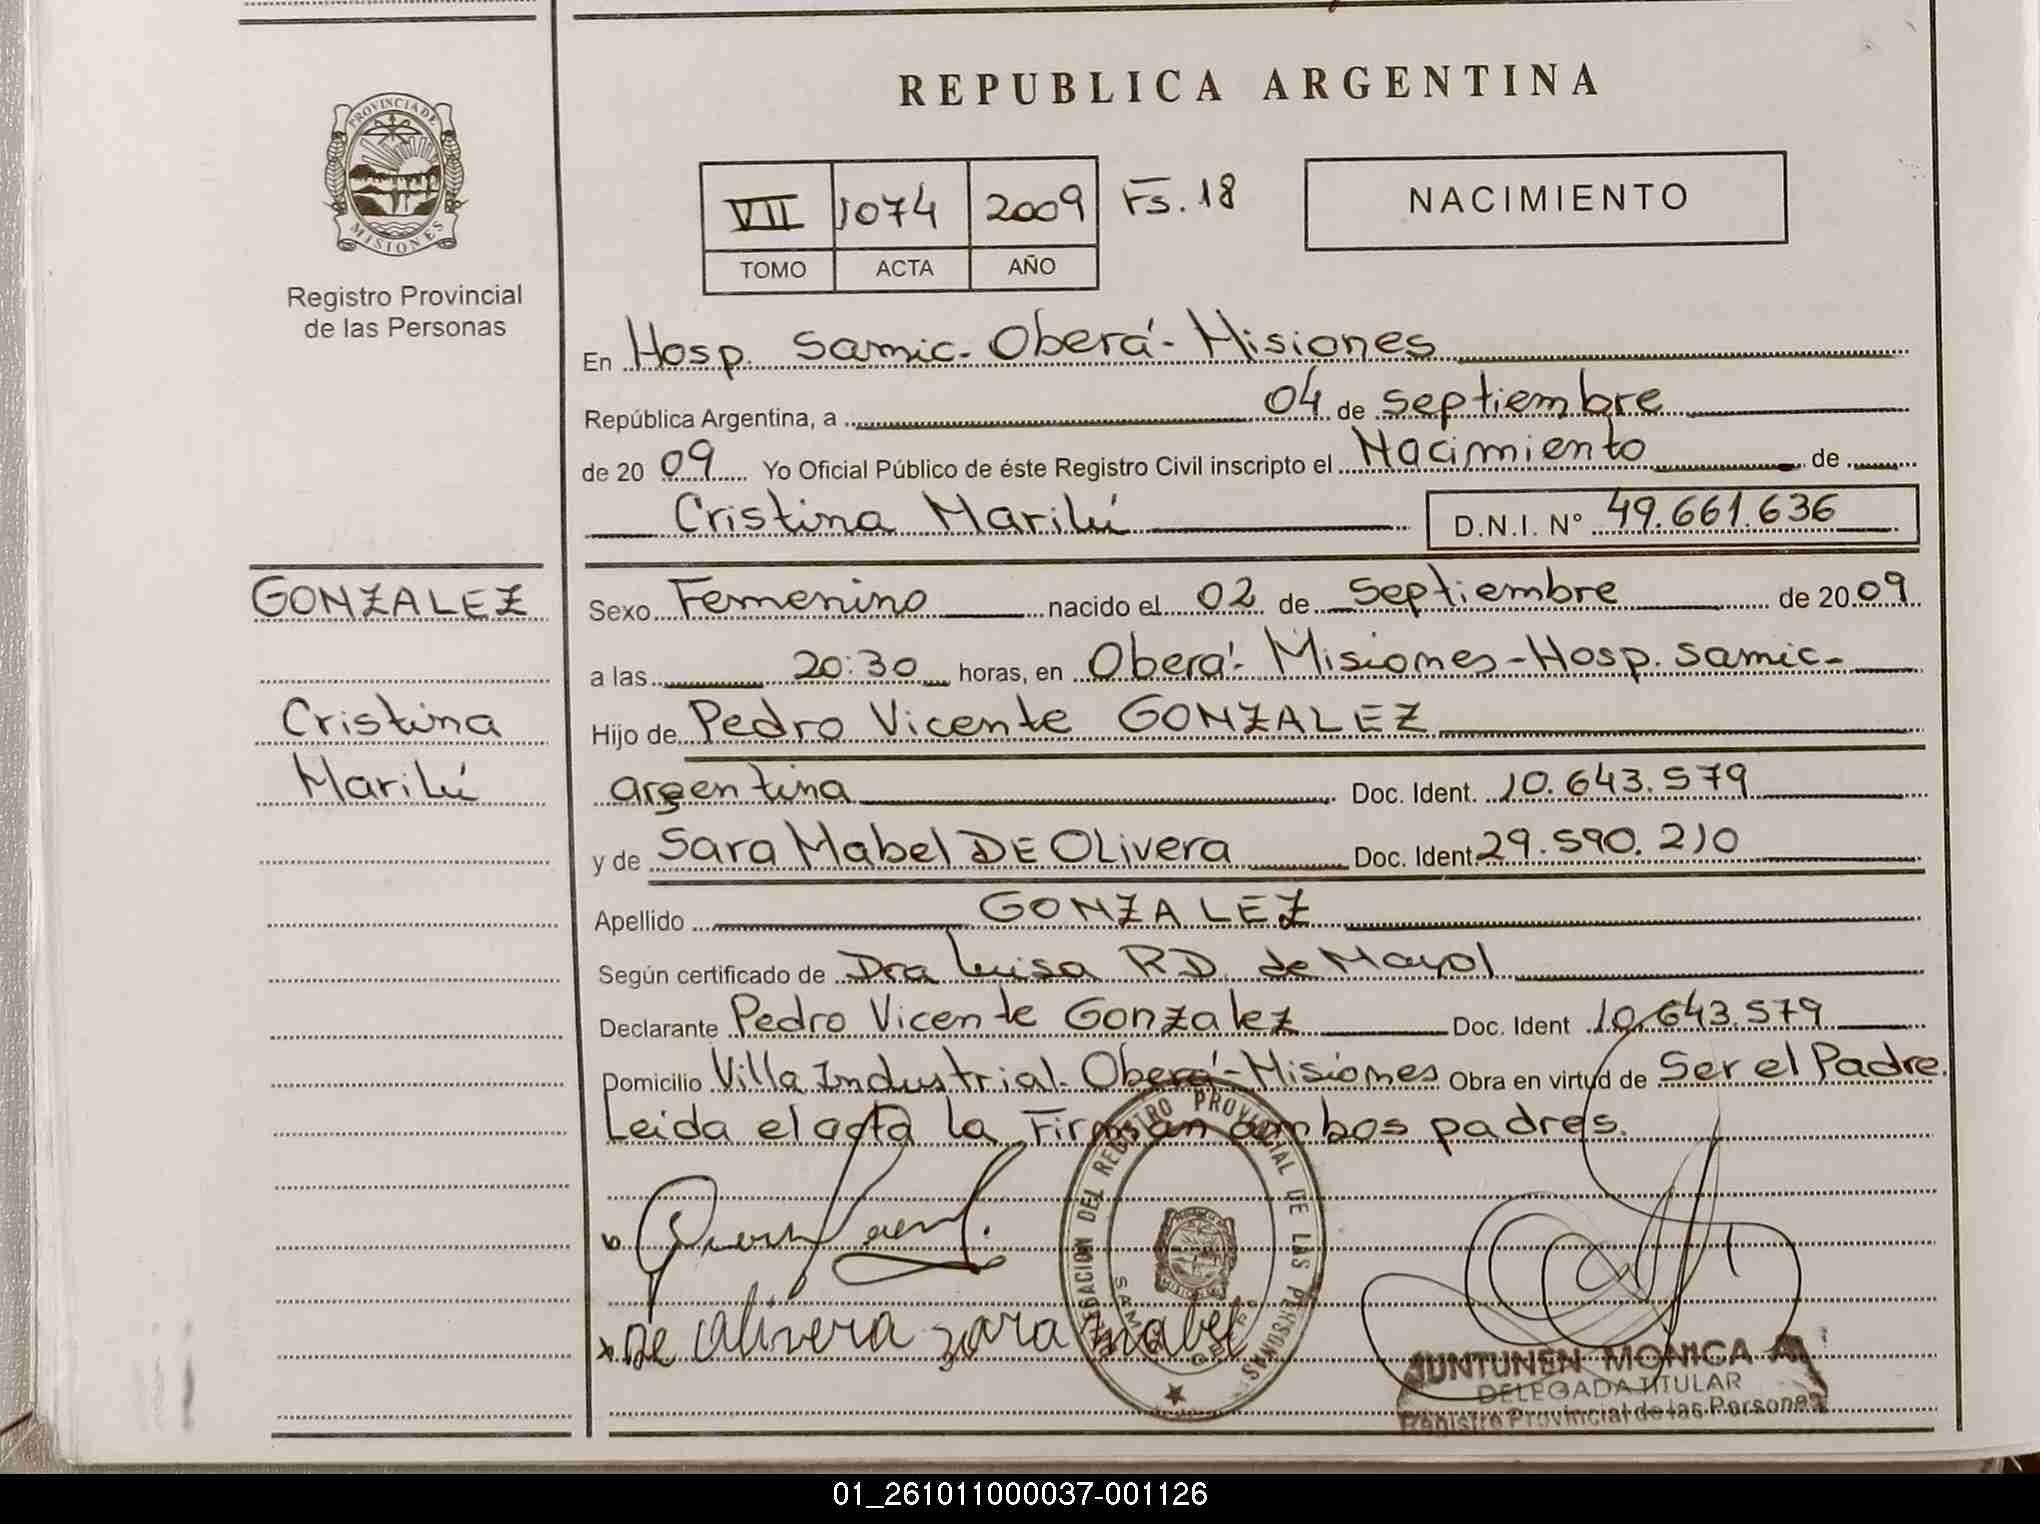 REPUBLICA ARGENTINA
PROVINCIA DE
MISIONES
Registro Provincial
de las Personas
VII 1074 2009 Fs. 18
TOMO ACTA AÑO
NACIMIENTO
En Hosp. Samic. Oberá - Misiones
República Argentina, a 04 de septiembre
de 2009 Yo Oficial Público de éste Registro Civil inscripto el Nacimiento de
Cristina Marilú D.N.I. N° 49.661.636
GONZALEZ
Cristina
Marilú
Sexo Femenino nacido el 02 de Septiembre de 2009
a las 20:30 horas, en Oberá - Misiones - Hosp. Samic -
Hijo de Pedro Vicente GONZALEZ
argentina Doc. Ident. 10.643.579
y de Sara Mabel DE OLivera Doc. Ident. 29.590.210
Apellido GONZALEZ
Según certificado de Dra Luisa RD de Mayol
Declarante Pedro Vicente Gonzalez Doc. Ident 10.643.579
Domicilio Villa Industrial. Oberá - Misiones Obra en virtud de Ser el Padre.
Leida el acta la Firman ambos padres.
DELEGACION DEL REGISTRO PROVINCIAL DE LAS PERSONAS
De Olivera zara mabel
JUNTUNEN MONICA
DELEGADA TITULAR
Registro Provincial de las Personas
01_261011000037-001126